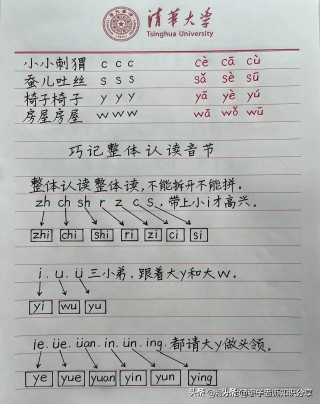 清华大学
Tsinghua University
小小刺猬 c c c cè cā cù
蚕儿吐丝 s s s sǎ sè sū
椅子椅子 y y y yā yè yú
房屋房屋 w w w wā wǒ wū
巧记整体认读音节
整体认读整体读,不能拆开不能拼。
zh ch sh r z c s,带上小i才高兴。
zhi chi shi ri zi ci si
i. u. ü 三小弟,跟着大y和大w。
yi wu yu
ie. üe. üan. in. ün. ing. 都请大y做头领。
ye yue yuan yin yun ying